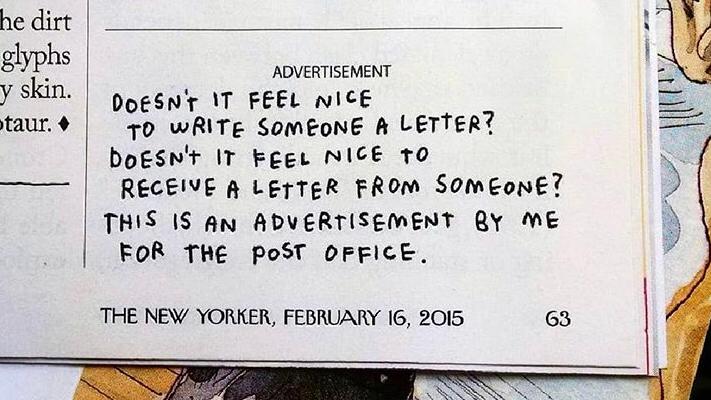 he dirt
glyphs
y skin.
otaur. ♦
ADVERTISEMENT
DOESN'T IT FEEL NICE
TO WRITE SOMEONE A LETTER?
DOESN'T IT FEEL NICE TO
RECEIVE A LETTER FROM SOMEONE?
THIS IS AN ADVERTISEMENT BY ME
FOR THE POST OFFICE.
THE NEW YORKER, FEBRUARY 16, 2015 63